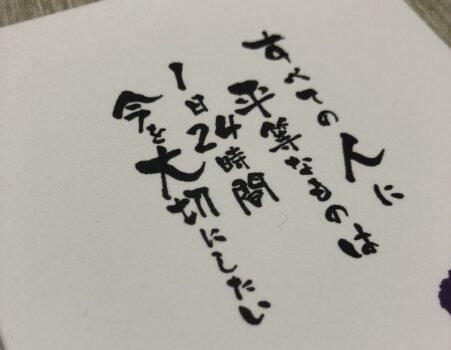 すべての人に
平等なものは
1日24時間
今を大切にしたい